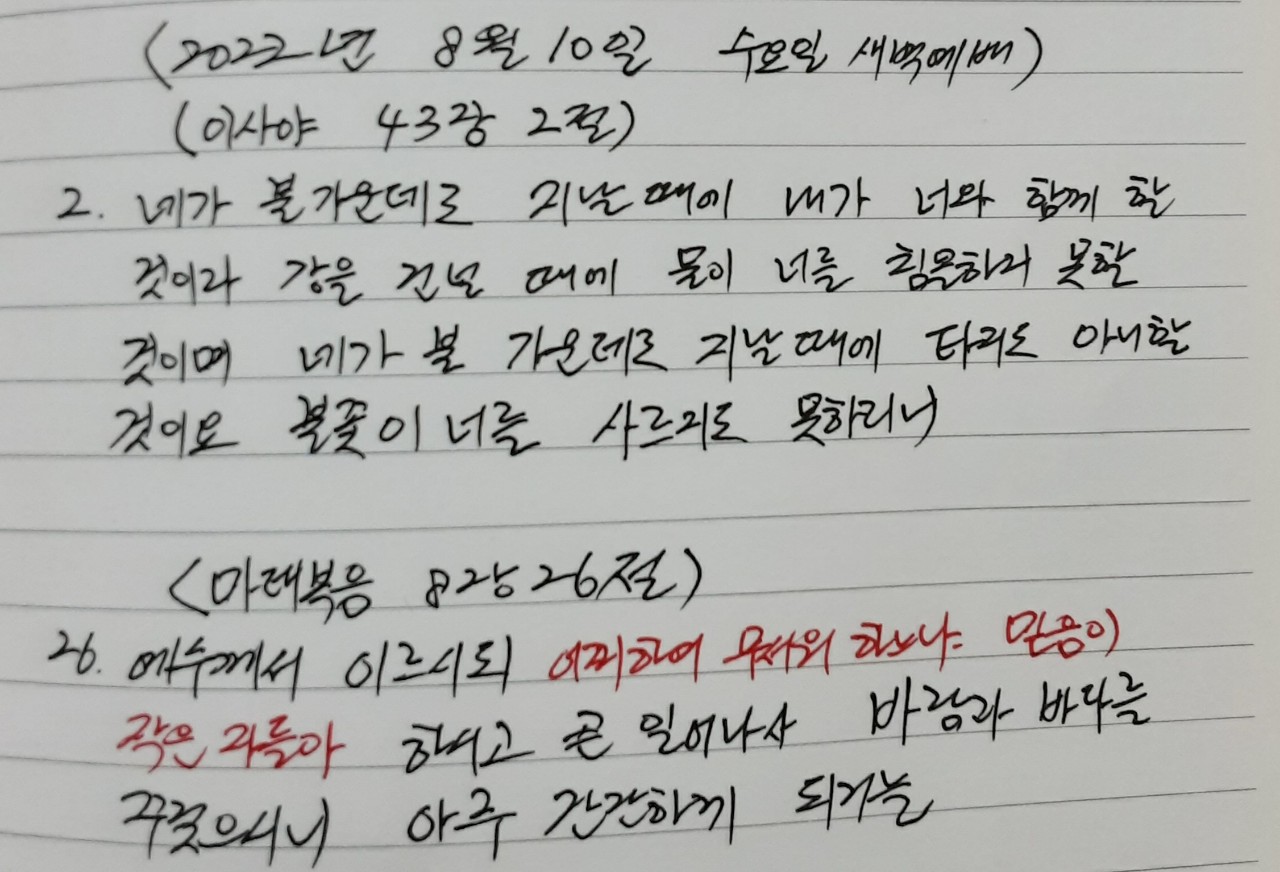 (2022년 8월 10일 수요일 새벽예배)
(이사야 43장 2절)
2. 네가 불가운데로 지날 때에 내가 너와 함께 할
것이라 강을 건널 때에 물이 너를 침몰하지 못할
것이며 네가 불 가운데로 지날 때에 타지도 아니할
것이요 불꽃이 너를 사르지도 못하리니
(마태복음 8장 26절)
26. 예수께서 이르시되 어찌하여 무서워 하느냐 믿음이
작은 자들아 하시고 곧 일어나사 바람과 바다를
꾸짖으시니 아주 잔잔하게 되거늘